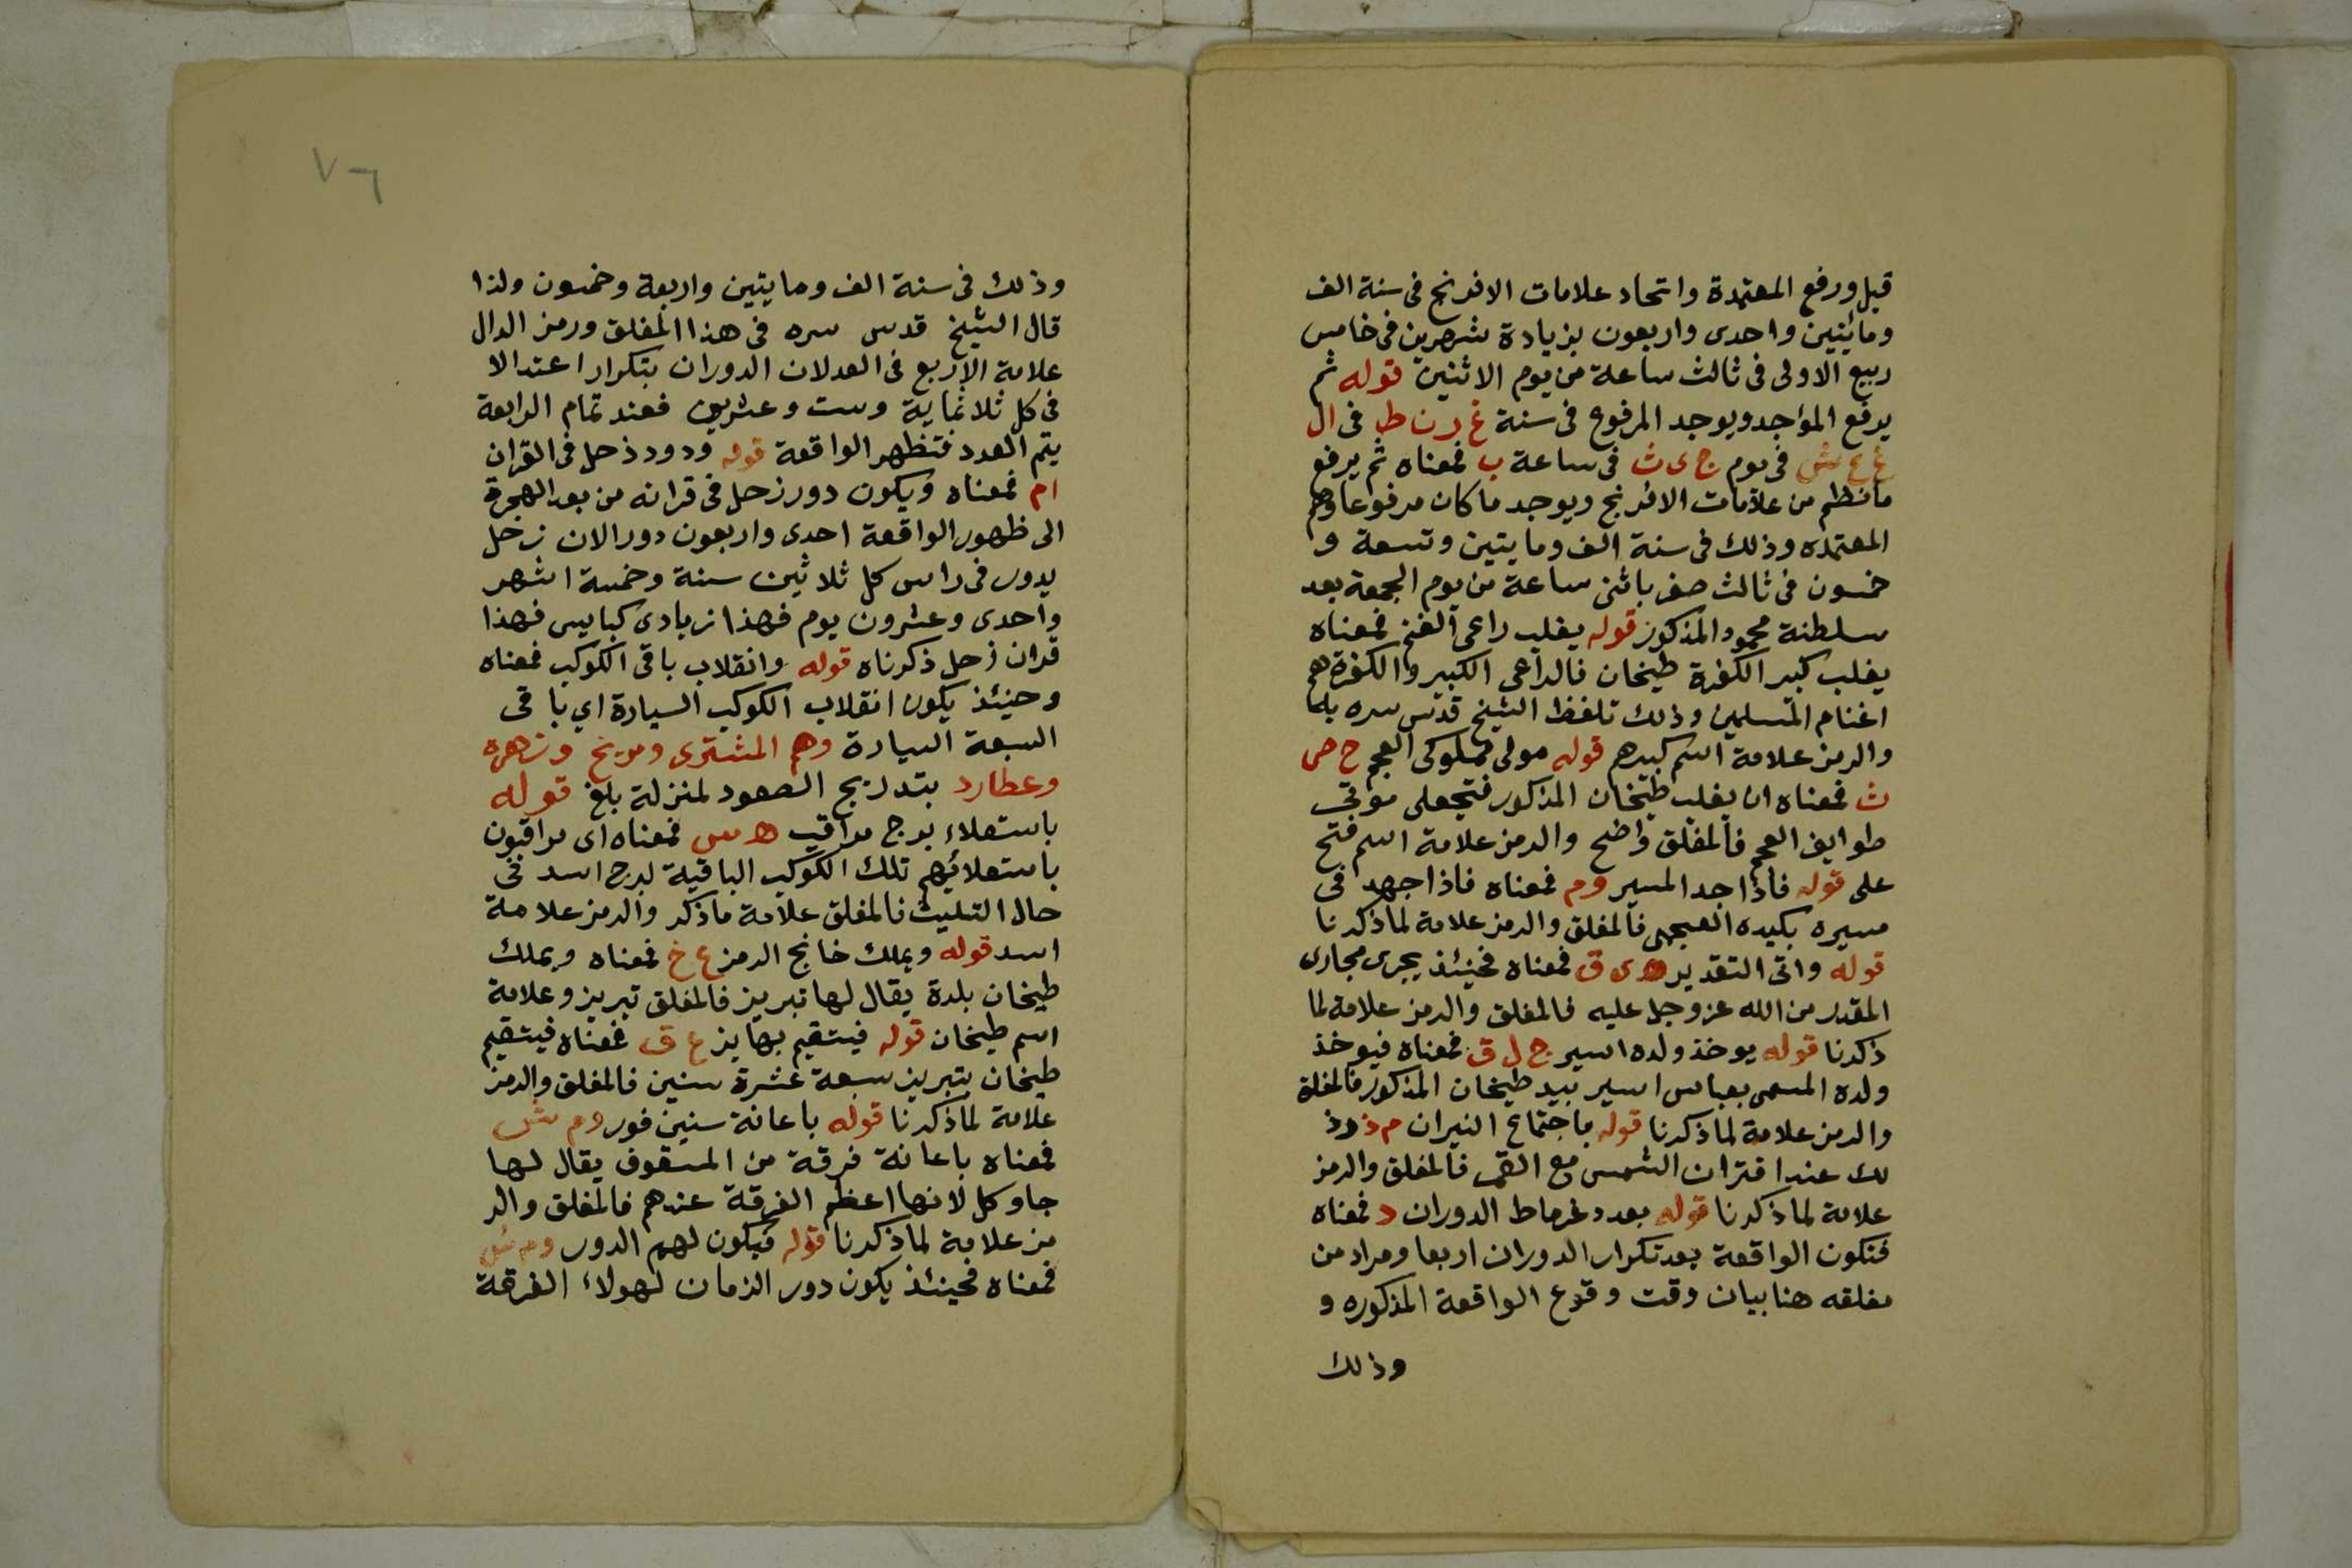 قبل ورفع المعتمدة واتحاد علامات الافرنج فى سنة الف
ومائتين واحدى واربعون بزيادة شهرين فى خامس
ربيع الاولى فى ثالث ساعة من يوم الاثنين قوله ثم
يرفع المؤاجد ويوجد المرفوع فى سنة غ ر ن ط فى ال
غ ع ش فى يوم ج ى ث فى ساعة ب فمعناه ثم يرفع
مانظم من علامات الافرنج ويوجد ما كان مرفوعا وهم
المعتمده وذلك فى سنة الف ومايتين وتسعة و
خمسون فى ثالث صفر باثنى ساعة من يوم الجمعة بعد
سلطنة محمود المذكور قوله يغلب راعى الغنم فمعناه
يغلب كبير الكفرة طيخان فالراعى الكبير والكفرة هم
اغنام المسلمين وذلك تلفظ الشيخ قدس سره بلما
والرمز علامة اسم كبيرهم قوله مولى مملوكى العجم ح ص
ث فمعناه ان يغلب طيخان المذكور فتجعلى موتى
طوايف العجم فالمغلق واضح والرمز علامة اسم فتح
على قوله فاذا جد المسير وم فمعناه فاذا جهد فى
مسيره بكيده العجمى فالمغلق والرمز علامة لما ذكرنا
قوله واتى التقدير ه ى ق فمعناه فحينئذ يجرى مجارى
المقدر من الله عز وجل عليه فالمغلق والرمز علامة لما
ذكرنا قوله يوخذ ولده اسير ج ل ق فمعناه فيوخذ
ولده المسمى بعباس اسير بيد طيخان المذكور فالمغلق
والرمز علامة لما ذكرنا قوله باجتماع النيران م ذ وذ
لك عند اقتران الشمس مع القمر فالمغلق والرمز
علامة لما ذكرنا قوله بعدد غرماط الدوران د فمعناه
فتكون الواقعة بعد تكرار الدوران اربعا ومراد من
مغلقه هنا بيان وقت وقوع الواقعة المذكوره و
وذلك
٧٦
وذلك فى سنة الف ومايتين واربعة وخمسون ولذا
قال الشيخ قدس سره فى هذا المغلق ورمز الدال
علامة الاربع فى العدلان الدوران بتكرار اعتدالا
فى كل ثلاثماية وست وعشرين فعند تمام الرابعة
يتم العدد فتظهر الواقعة قوله ودور زحل فى القران
ام فمعناه ويكون دور زحل فى قرانه من بعد الهجرة
الى ظهور الواقعة احدى واربعون دور الان زحل
يدور فى راس كل ثلاثين سنة وخمسة اشهر
واحدى وعشرون يوم فهذا زيادى كبايس فهذا
قران زحل ذكرناه قوله وانقلاب باقى الكوكب فمعناه
وحينئذ يكون انقلاب الكوكب السيارة اي باقى
السبعة السيارة وهم المشترى ومريخ وزهره
وعطارد بتدريج الصعود لمنزلة بلغ قوله
باستعلاء برج مراقب ه س فمعناه اى مراقبون
باستعلائهم تلك الكوكب الباقية لبرج اسد فى
حال التثليث فالمغلق علامة ماذكر والرمز علامة
اسد قوله ويملك خانج الرمز ع خ فمعناه ويملك
طيخان بلدة يقال لها تبريز فالمغلق تبريز وعلامة
اسم طيخان قوله فيتقيم بها يز ع ق فمعناه فيتقيم
طيخان بتبريز سبعة عشرة سنين فالمغلق والرمز
علامة لما ذكرنا قوله باعانة سنين فور وم ش
فمعناه باعانة فرقة من المسقوف يقال لها
جاوكل لانها اعظم الفرقة عندهم فالمغلق والر
مز علامة لما ذكرنا قوله فيكون لهم الدور وم ش
فمعناه فحينئذ يكون دور الزمان لهولاء الفرقة